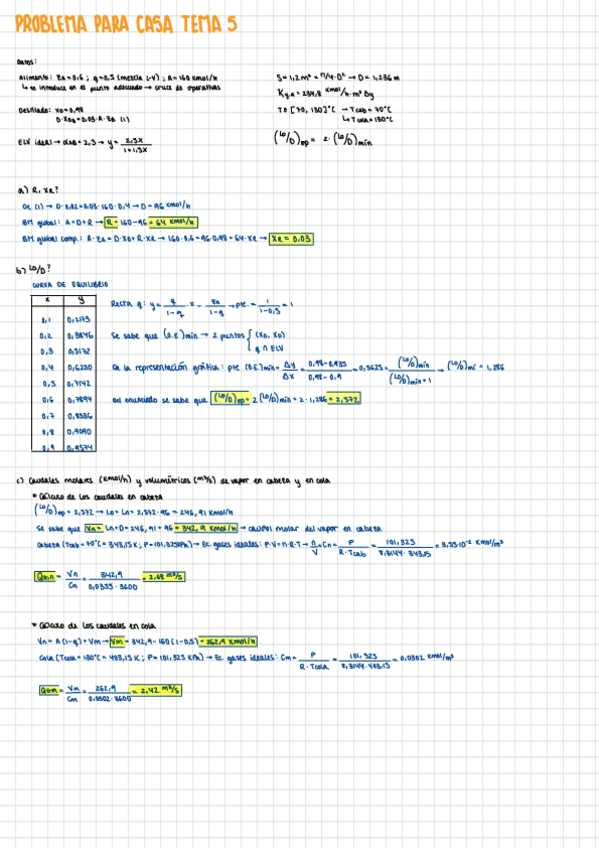 PROBLEMA PARA CASA TEMA 5
Datos:
Alimento: ZA = 0,6 ; q = 0,5 (mezcla L-V) ; A = 160 kmol/h
↳ se introduce en el punto adecuado → cruce de operativas
Destilado: XD = 0,98
D·XDA = 0,98·A·ZA (1)
ELV ideal → αAB = 2,5 → y = 2,5X / 1+1,5X
S = 1,2 m² = π/4·D² → D = 1,236 m
Ky·a = 234,8 kmol/h·m³ Δy
T∈[70, 130]°C → Tcab = 70°C
↳ Tcola = 130°C
(L0/D)op = 2·(L0/D)mín
a) R, XR?
BM global: A = D + R → R = 160 - 96 = 64 kmol/h
BM global comp.: A·ZA = D·XD + R·XR → 160·0,6 = 96·0,98 + 64·XR → XR = 0,03
b) L0/D?
CURVA DE EQUILIBRIO
x y
0,1 0,2173
0,2 0,3846
0,3 0,5172
0,4 0,6250
0,5 0,7142
0,6 0,7894
0,7 0,8536
0,8 0,9090
0,9 0,9574
Recta q: y = q/1-q · x - ZA/1-q → pte. = 1/1-0,5 = 1
Se sabe que (O.E)mín → 2 puntos { (XD, XD)
q ∩ ELV
De la representación gráfica: pte (O.E)mín = Δy/Δx = 0,98-0,935/0,98-0,9 = 0,5625 = (L0/D)mín/(L0/D)mín+1 → (L0/D)mí = 1,286
Del enunciado se sabe que (L0/D)op = 2(L0/D)mín = 2·1,286 = 2,572
c) Caudales molares (kmol/h) y volumétricos (m³/s) de vapor en cabeza y en cola
* Cálculo de los caudales en cabeza
(L0/D)op = 2,572 → L0 = Ln = 2,572·96 = 246,91 kmol/h
Se sabe que Vn = Ln + D = 246,91 + 96 = 342,9 kmol/h → caudal molar del vapor en cabeza
Cabeza (Tcab = 70°C = 343,15K; P = 101,325kPa) → Ec. gases ideales: P·V = n·R·T → n/V = Cn = P/R·Tcab = 101,325/8,3144·343,15 = 3,55·10⁻² kmol/m³
Qvn = Vn/Cn = 342,9/0,0355·3600 = 2,68 m³/s
* Cálculo de los caudales en cola
Vn = A(1-q) + Vm → Vm = 342,9 - 160(1-0,5) = 262,9 kmol/h
Cola (Tcola = 130°C = 403,15K; P = 101,325 kPa) → Ec. gases ideales: Cm = P/R·Tcola = 101,325/8,3144·403,15 = 0,0302 kmol/m³
Qvm = Vm/Cm = 262,9/0,0302·3600 = 2,42 m³/s